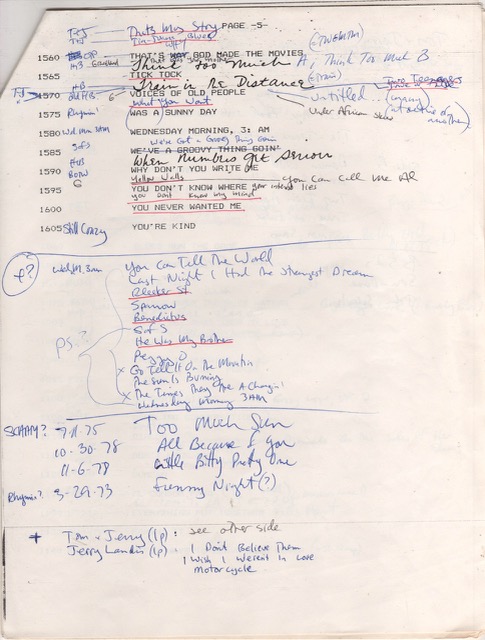 T+J That's My Story PAGE -5-
Tia-Juana Blues
1560 THAT'S WHY GOD MADE THE MOVIES
H+B Think Too Much A, Think Too Much B
1565 TICK TOCK (Train)
H+B Train in the Distance
T+J 1570 VOICES OF OLD PEOPLE Untitled
What You Want
1575 Rhymin' WAS A SUNNY DAY Under African Skies
1580 Wed Mn 3AM WEDNESDAY MORNING, 3: AM
We've Got a Groovy Thing Goin
1585 SofS WE'VE A GROOVY THING GOIN'
H+B When Numbers Get Serious
1590 BOTW WHY DON'T YOU WRITE ME
Yellow Walls You Can Call Me Al
1595 YOU DON'T KNOW WHERE your interest lies
You Don't Know My Mind
1600 YOU NEVER WANTED ME
1605 Still Crazy YOU'RE KIND
+? Wed Mn 3am You Can Tell The World
Last Night I Had the Strangest Dream
Bleeker St
Sparrow
Benedictus
PS? SofS
He Was My Brother
Peggy O
x Go Tell It On The Mountain
The Sun Is Burning
x The Times They Are A Changin'
Wednesday Morning 3AM
7.11.75 Too Much Sun
10.30.78 All Because of You
11.6.78 Little Bitty Pretty One
Rhymin? 3-29-73 Funny Night (?)
+ Tom + Jerry (lp): see other side
Jerry Landis (lp): I Don't Believe Them
I Wish I Weren't in Love
Motorcycle